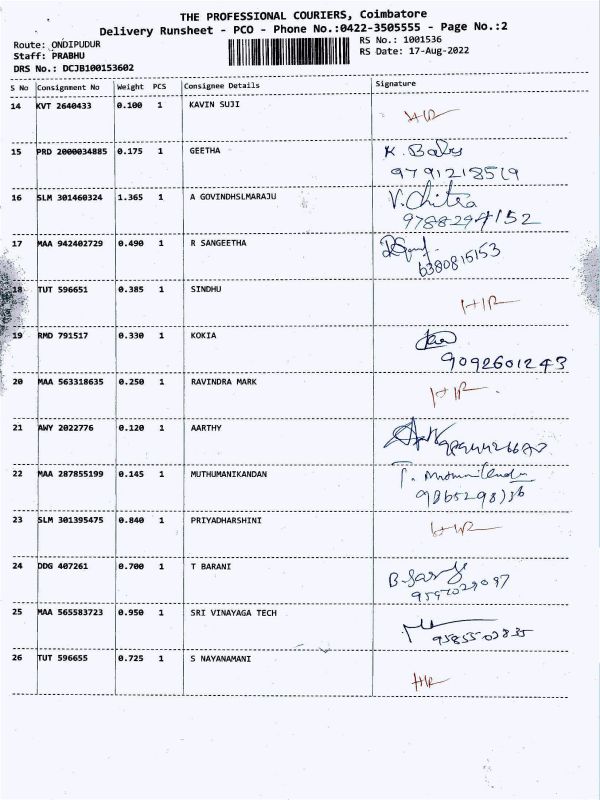 THE PROFESSIONAL COURIERS, Coimbatore
Delivery Runsheet - PCO - Phone No.:0422-3505555 - Page No.:2
Route: ONDIPUDUR
RS No.: 1001536
Staff: PRABHU
RS Date: 17-Aug-2022
DRS No.: DCJB100153602
S No Consignment No Weight PCS Consignee Details Signature
14 KVT 2640433 0.100 1 KAVIN SUJI
HR
15 PRD 2000034885 0.175 1 GEETHA K. Baby
9791218519
16 SLM 301460324 1.365 1 A GOVINDHSLMARAJU V. Chitra
9788294152
17 MAA 942402729 0.490 1 R SANGEETHA
6380815153
18 TUT 596651 0.385 1 SINDHU
HR
19 RMD 791517 0.330 1 KOKIA
9092601243
20 MAA 563318635 0.250 1 RAVINDRA MARK
HR
21 AWY 2022776 0.120 1 AARTHY
22 MAA 287855199 0.145 1 MUTHUMANIKANDAN
23 SLM 301395475 0.840 1 PRIYADHARSHINI
HR
24 DDG 407261 0.700 1 T BARANI
25 MAA 565583723 0.950 1 SRI VINAYAGA TECH
26 TUT 596655 0.725 1 S NAYANAMANI
HR